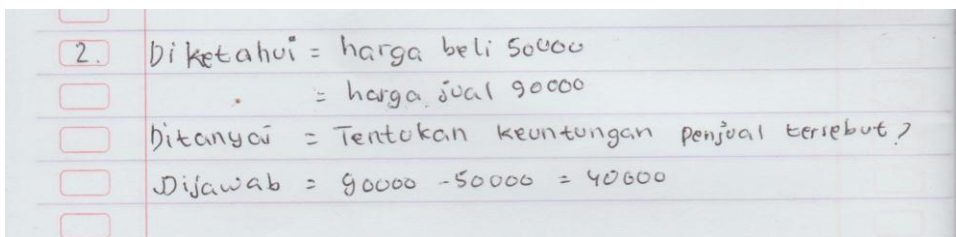 2. Diketahui = harga beli 50000
= harga jual 90000
Ditanyai = Tentukan keuntungan penjual tersebut?
Dijawab = 90000 - 50000 = 40000